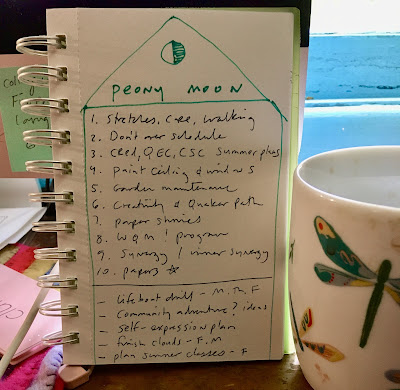 PEONY MOON
1. Stretches, Care, walking
2. Don't over schedule
3. CRed, QEC, CSC Summer plans
4. Paint Ceiling & windows
5. Garden maintenance
6. Creativity & Quaker Path
7. paper stories
8. WQM! program
9. Synergy / inner synergy
10. papers
- lifeboat drills - M. Th. F
- Community adventure? ideas
- self-expression plan
- finish clouds - F. M.
- plan summer classes - F